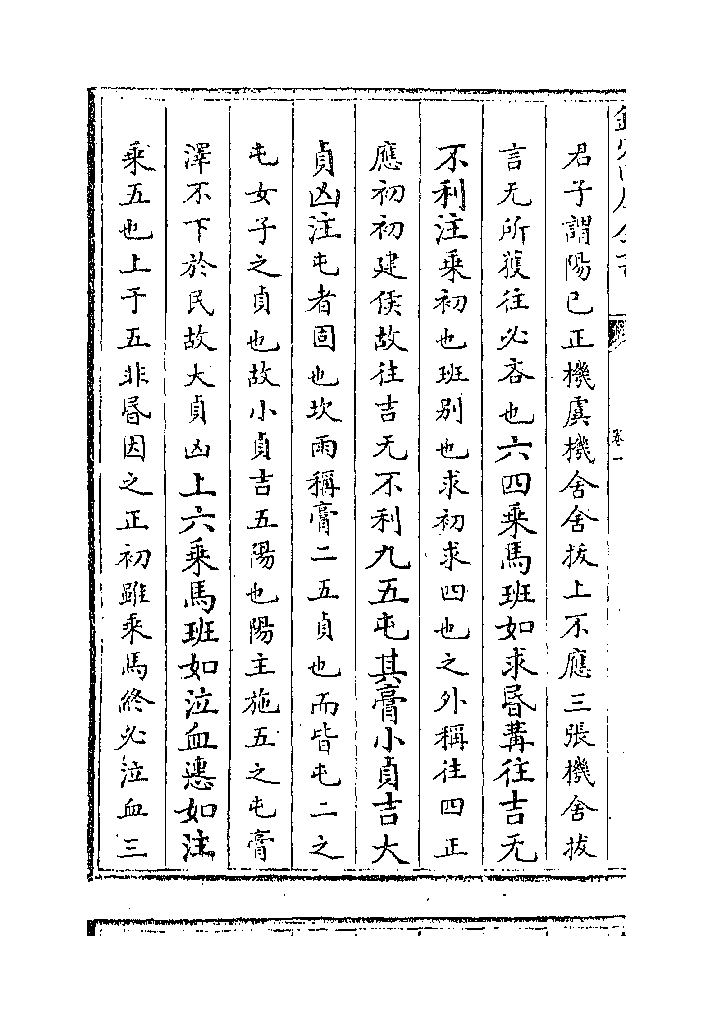 君子謂陽已正機虞機舍舍拔上不應三張機舍拔
言无所獲往必吝也六四乘馬班如求昏冓往吉无
不利注乘初也班別也求初求四也之外稱往四正
應初初建侯故往吉无不利九五屯其膏小貞吉大
貞凶注屯者固也坎雨稱膏二五貞也而皆屯二之
屯女子之貞也故小貞吉五陽也陽主施五之屯膏
澤不下於民故大貞凶上六乘馬班如泣血慐如注
乘五也上于五非昏因之正初雖乘馬終必泣血三